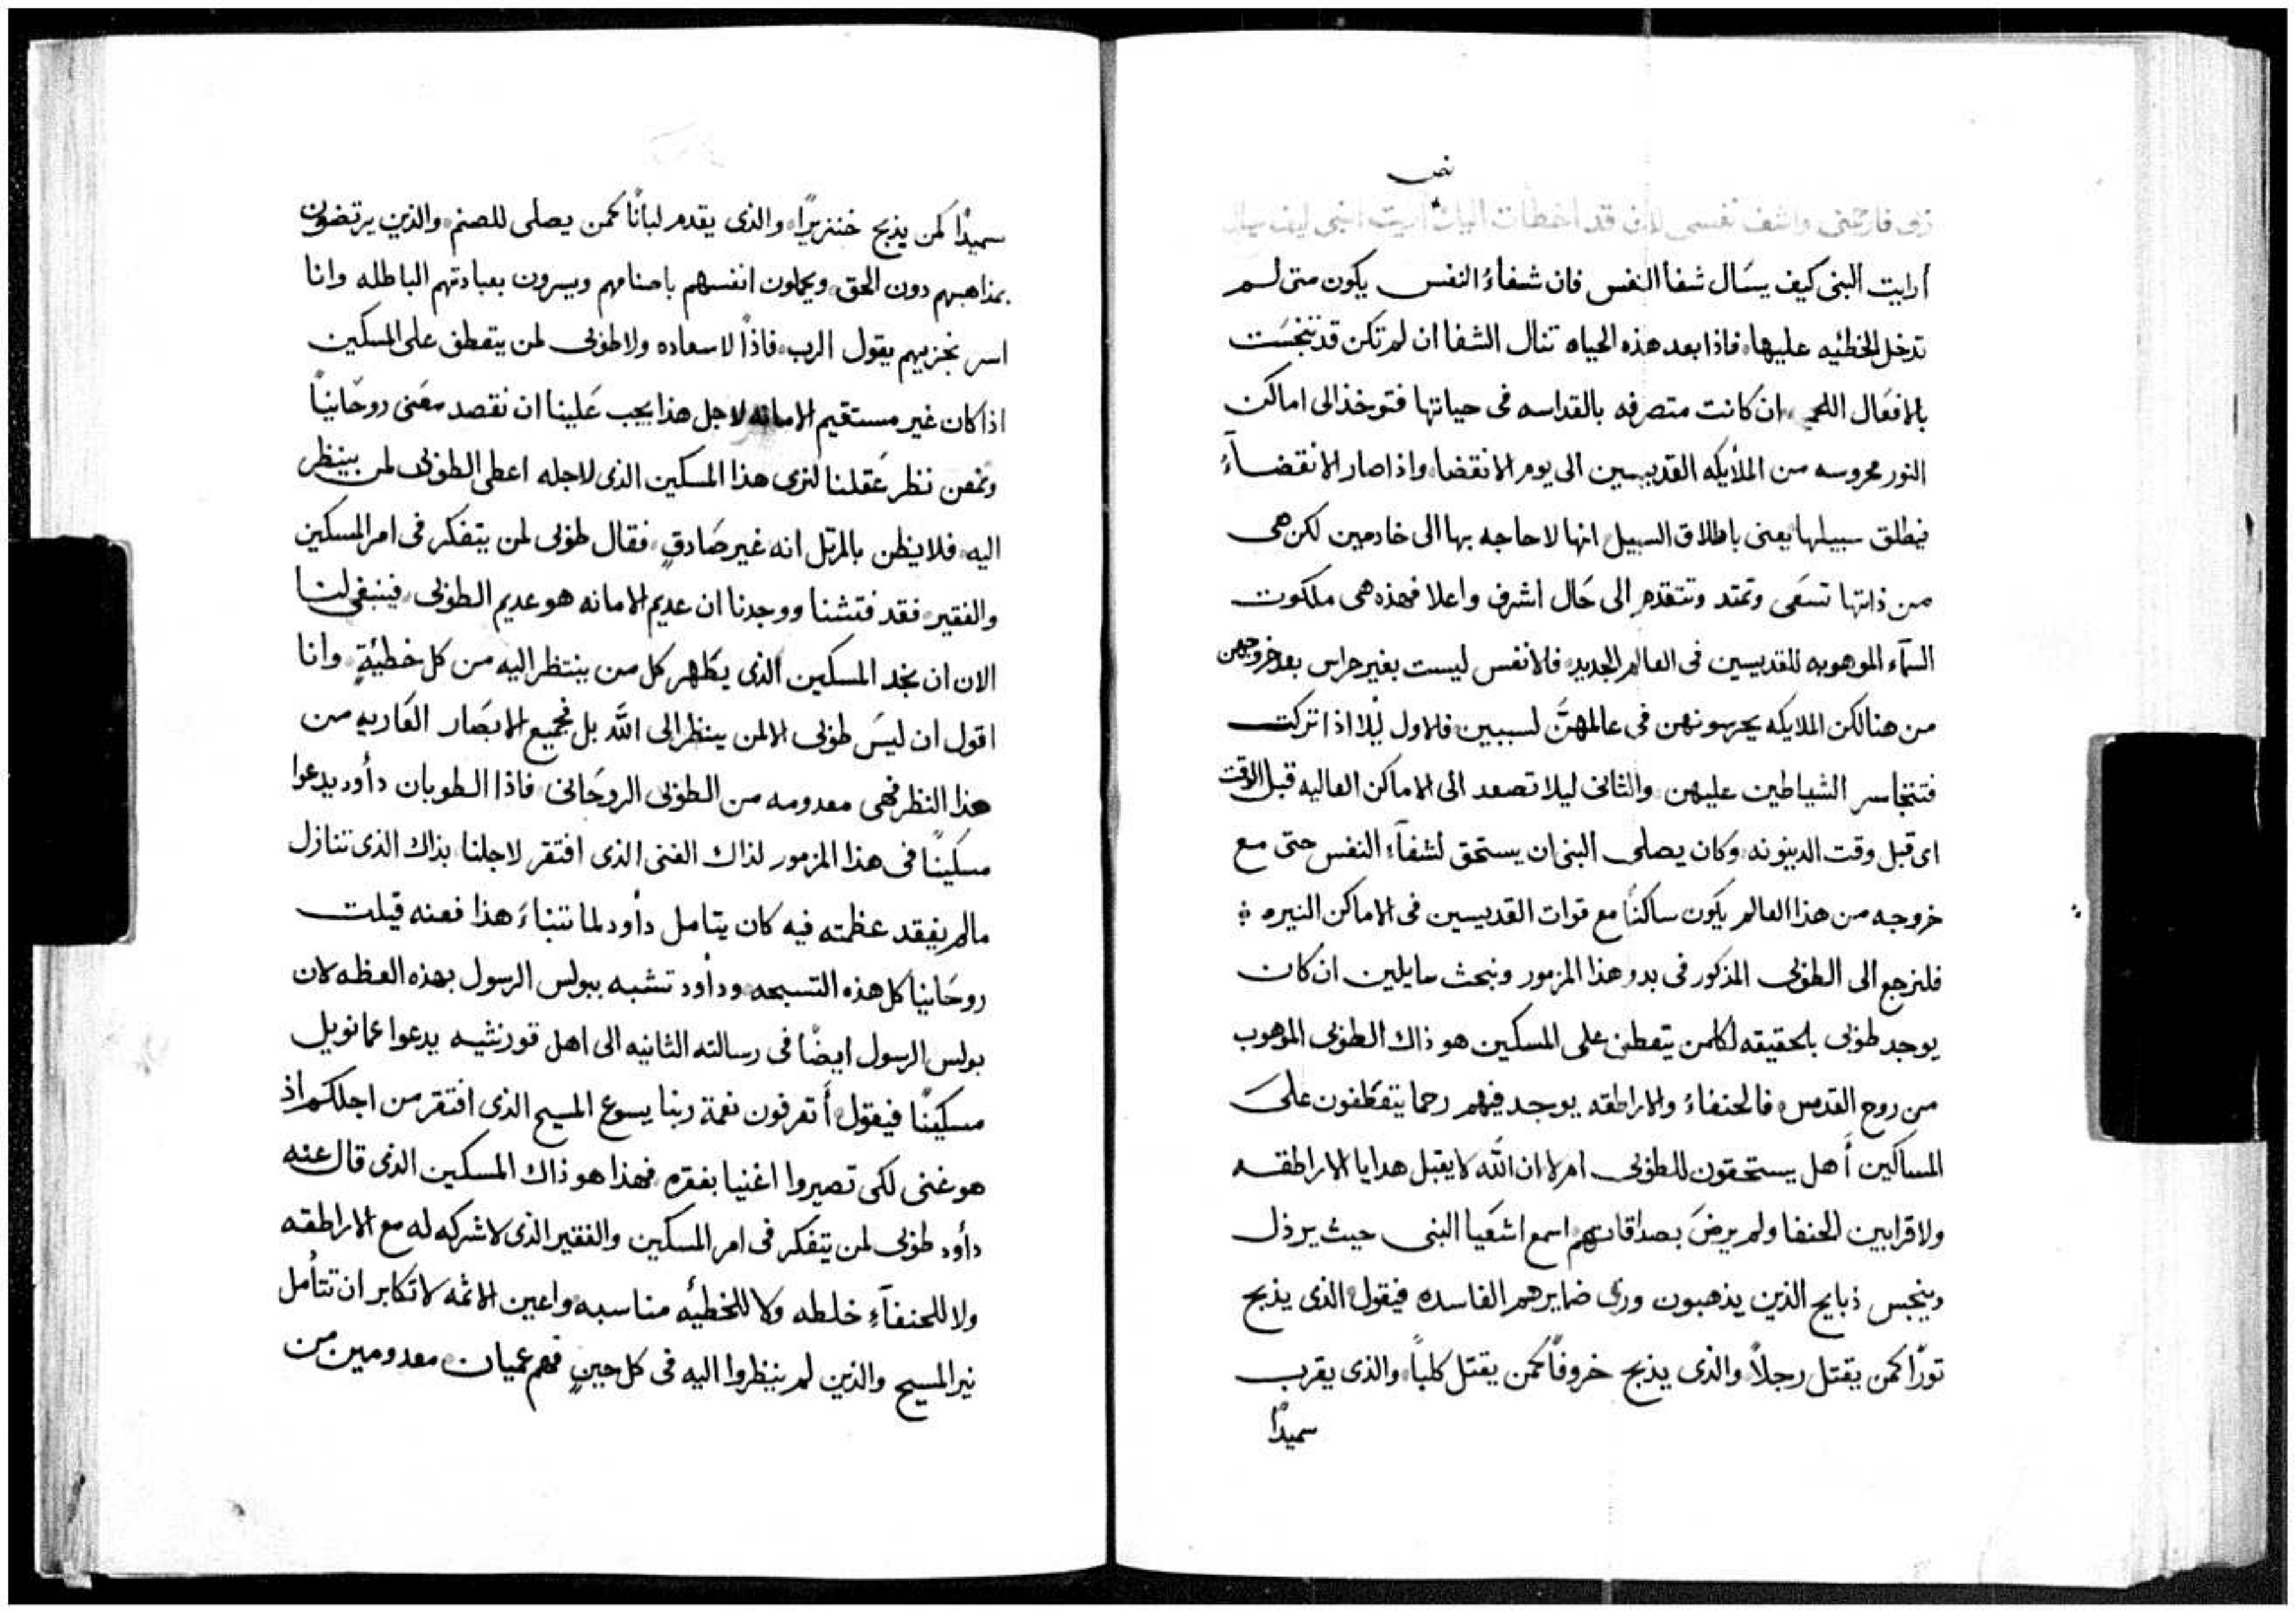 نص
أرايت النبى كيف يسَال شفا النفس فان شفاءُ النفس يكون متى لم
تدخل الخطئيه عليها، فاذا بعد هذه الحياه تنال الشفا ان لم تكن قد تنجسَت
بالافعَال ان كانت متصرفه بالقداسه فى حياتها فتوخذ الى اماكن
النور محروسه من الملأيكه القديسين الى يوم الانقضا، واذا صار الانقضآءُ
فيطلق سبيلها، يعنى باطلاق السبيل انها لا حاجه بها الى خادمين لكن هى
من ذاتها تسعَى وتمتد وتتقدم الى حَال اشرف واعلا فهذه هى ملكوت
السمآء الموهوبه للقديسين فى العالم الجديد، فالانفس ليست بغير حراس بعد خروجهن
من هنا لكن الملايكه يحرسونهن فى عالمهنَّ لسببين، فالاول ليْلا اذا تركت
فتتجاسر الشياطين عليهن، والثانى ليلا تصعد الى الاماكن العاليه قبل الوقت
اى قبل وقت الدينونه، وكان يصلى النبى ان يستحق لشفآء النفس حتى مع
خروجه من هذا العالم يكون ساكنًا مع قوات القديسين فى الاماكن النيره ÷
فلنرجع الى الطوبى المذكور فى بدو هذا المزمور ونبحث سايلين ان كان
يوجد طوبى بالحقيقه لكلمن يتعطف على المسكين هو ذاك الطوبى الموهوب
من روح القدس، فالحنفاءُ والاراطقه يوجد فيهم رحما يتعَطفون علَى
المساكين أهل يستحقون للطوبى ام لا، ان الله لا يقبل هدايا الاراطقه
ولا قرابين الحنفا ولم يرضَ بصداقاتهم، اسمع اشعَيا النبى حيث يرذل
وينجس ذبايح الذين يذهبون ورى ضمايرهم الفاسده فيقول، الذى يذبح
تورًا كمن يقتل رجلاً، والذى يذبح خروفًا كمن يقتل كلبًا، والذى يقرب
سميدًا
سميدًا كمن يذبح خنزيرًا، والذى يقدم لبانًا كمن يصلى للصنم، والذين يرتضون
بمذاهبهم دون الحق، ويجملون انفسهم باصنامهم ويسرون بعبادتهم الباطله وانا
اسر بخزيهم يقول الرب، فاذًا لا سعاده ولا طوبى لمن يتعطف على المسكين
اذا كان غير مستقيم الامانه لاجل هذا يجب عَلينا ان نقصد معَنى روحَانيًا
ونمعن نظر عَقلنا لنرى هذا المسكين الذى لاجله اعطى الطوبى لمن ينظر
اليه، فلا يظن بالمرتل انه غير صَادقٍ، فقال طوبى لمن يتفكر فى امر المسكين
والفقير، فقد فتشنا ووجدنا ان عديم الامانه هو عديم الطوبى، فينبغى لنا
الان ان نجد المسكين الذى يطَهر كل من ينتظر اليه من كل خطيئةٍ، وانا
اقول ان ليسَ طوبى الا لمن ينظر الى اللَّه بل فجميع الابصَار العَاريه من
هذا النظر فهى معدومه من الطوبى الروحَانى، فاذا الطوبان دأود يدعوا
مسكينًا فى هذا المزمور لذاك الغنى الذى افتقر لاجلنا، بذاك الذى تنازل
مالم يفقد عظمته فيه كان يتامل دأود لما تنباءَ هذا فعنه قيلت
روحَانيا كل هذه التسبحه، ودأود تشبه ببولس الرسول بهذه العظه لان
بولس الرسول ايضًا فى رسالته الثانيه الى اهل قورنثيه يدعوا عمانويل
مسكينًا فيقول، أتعرفون نعمة ربنا يسوع المسيح الذى افتقر من اجلكم اذ
هو غنى لكى تصيروا اغنيا بفقره، فهذا هو ذاك المسكين الذى قال عنه
دأود طوبى لمن يتفكر فى امر المسكين والفقير الذى لا شركه له مع الاراطقه
ولا للحنفآءِ خلطه ولا للخطئيه مناسبه، واعين الاثمه لا تكابر ان تتأمل
نير المسيح والذين لم ينظروا اليه فى كل حينٍ فهم عميان، معدومين من